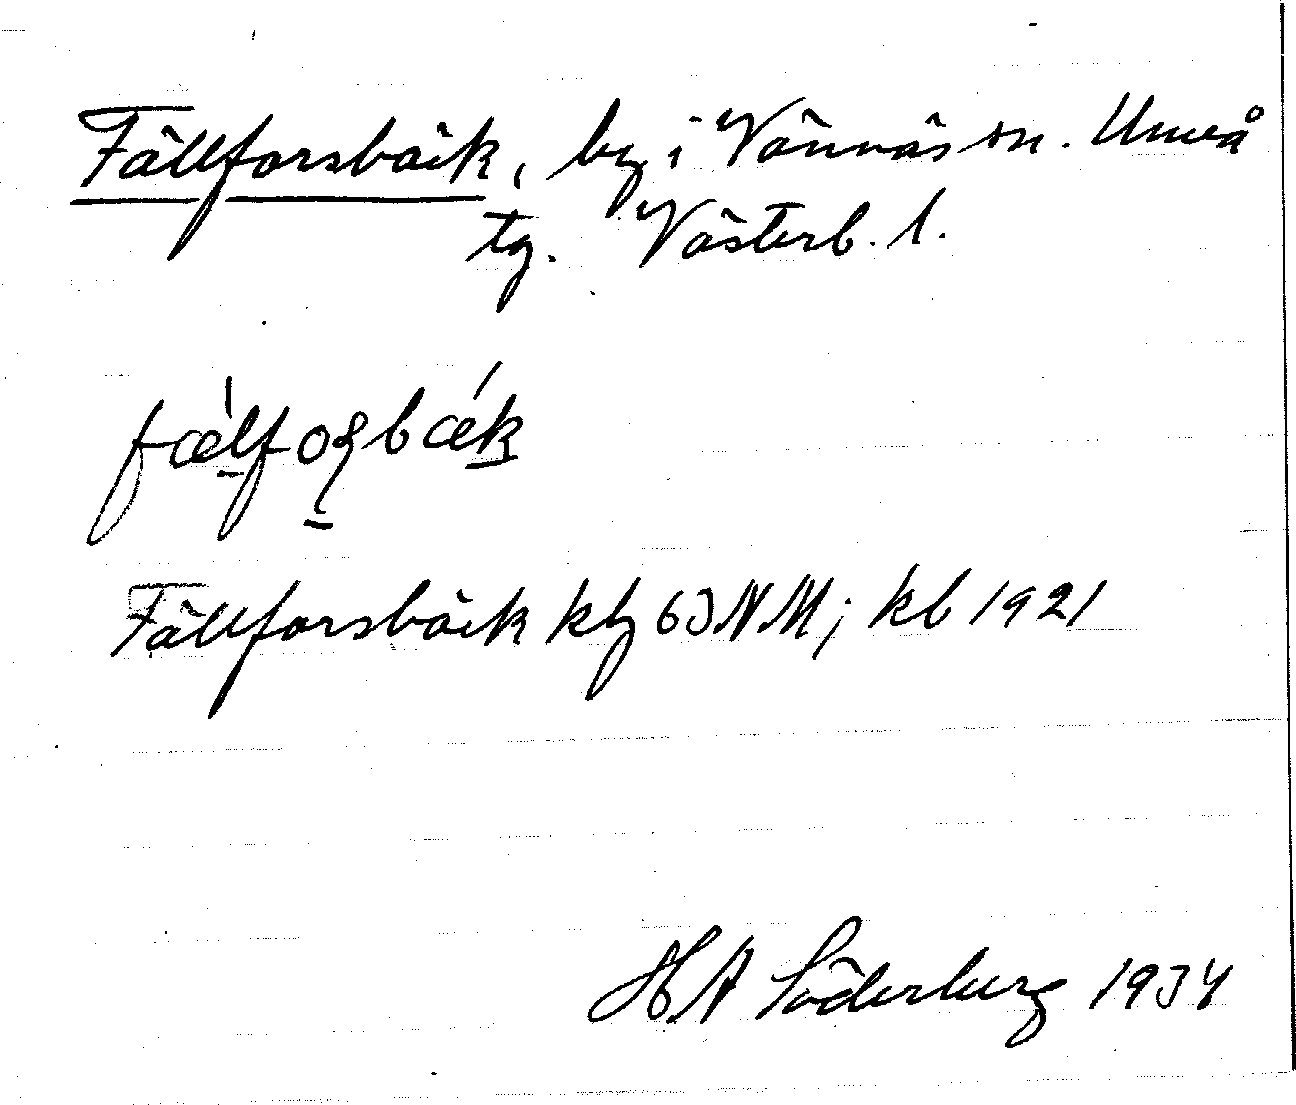 Fällforsbäck, by i Vännäs sn. Umeå
tg. Västerb. l.
fǽlfoʂbǽk
Fällforsbäck kbl 63 NM; kb 1921
H A Söderberg 1934